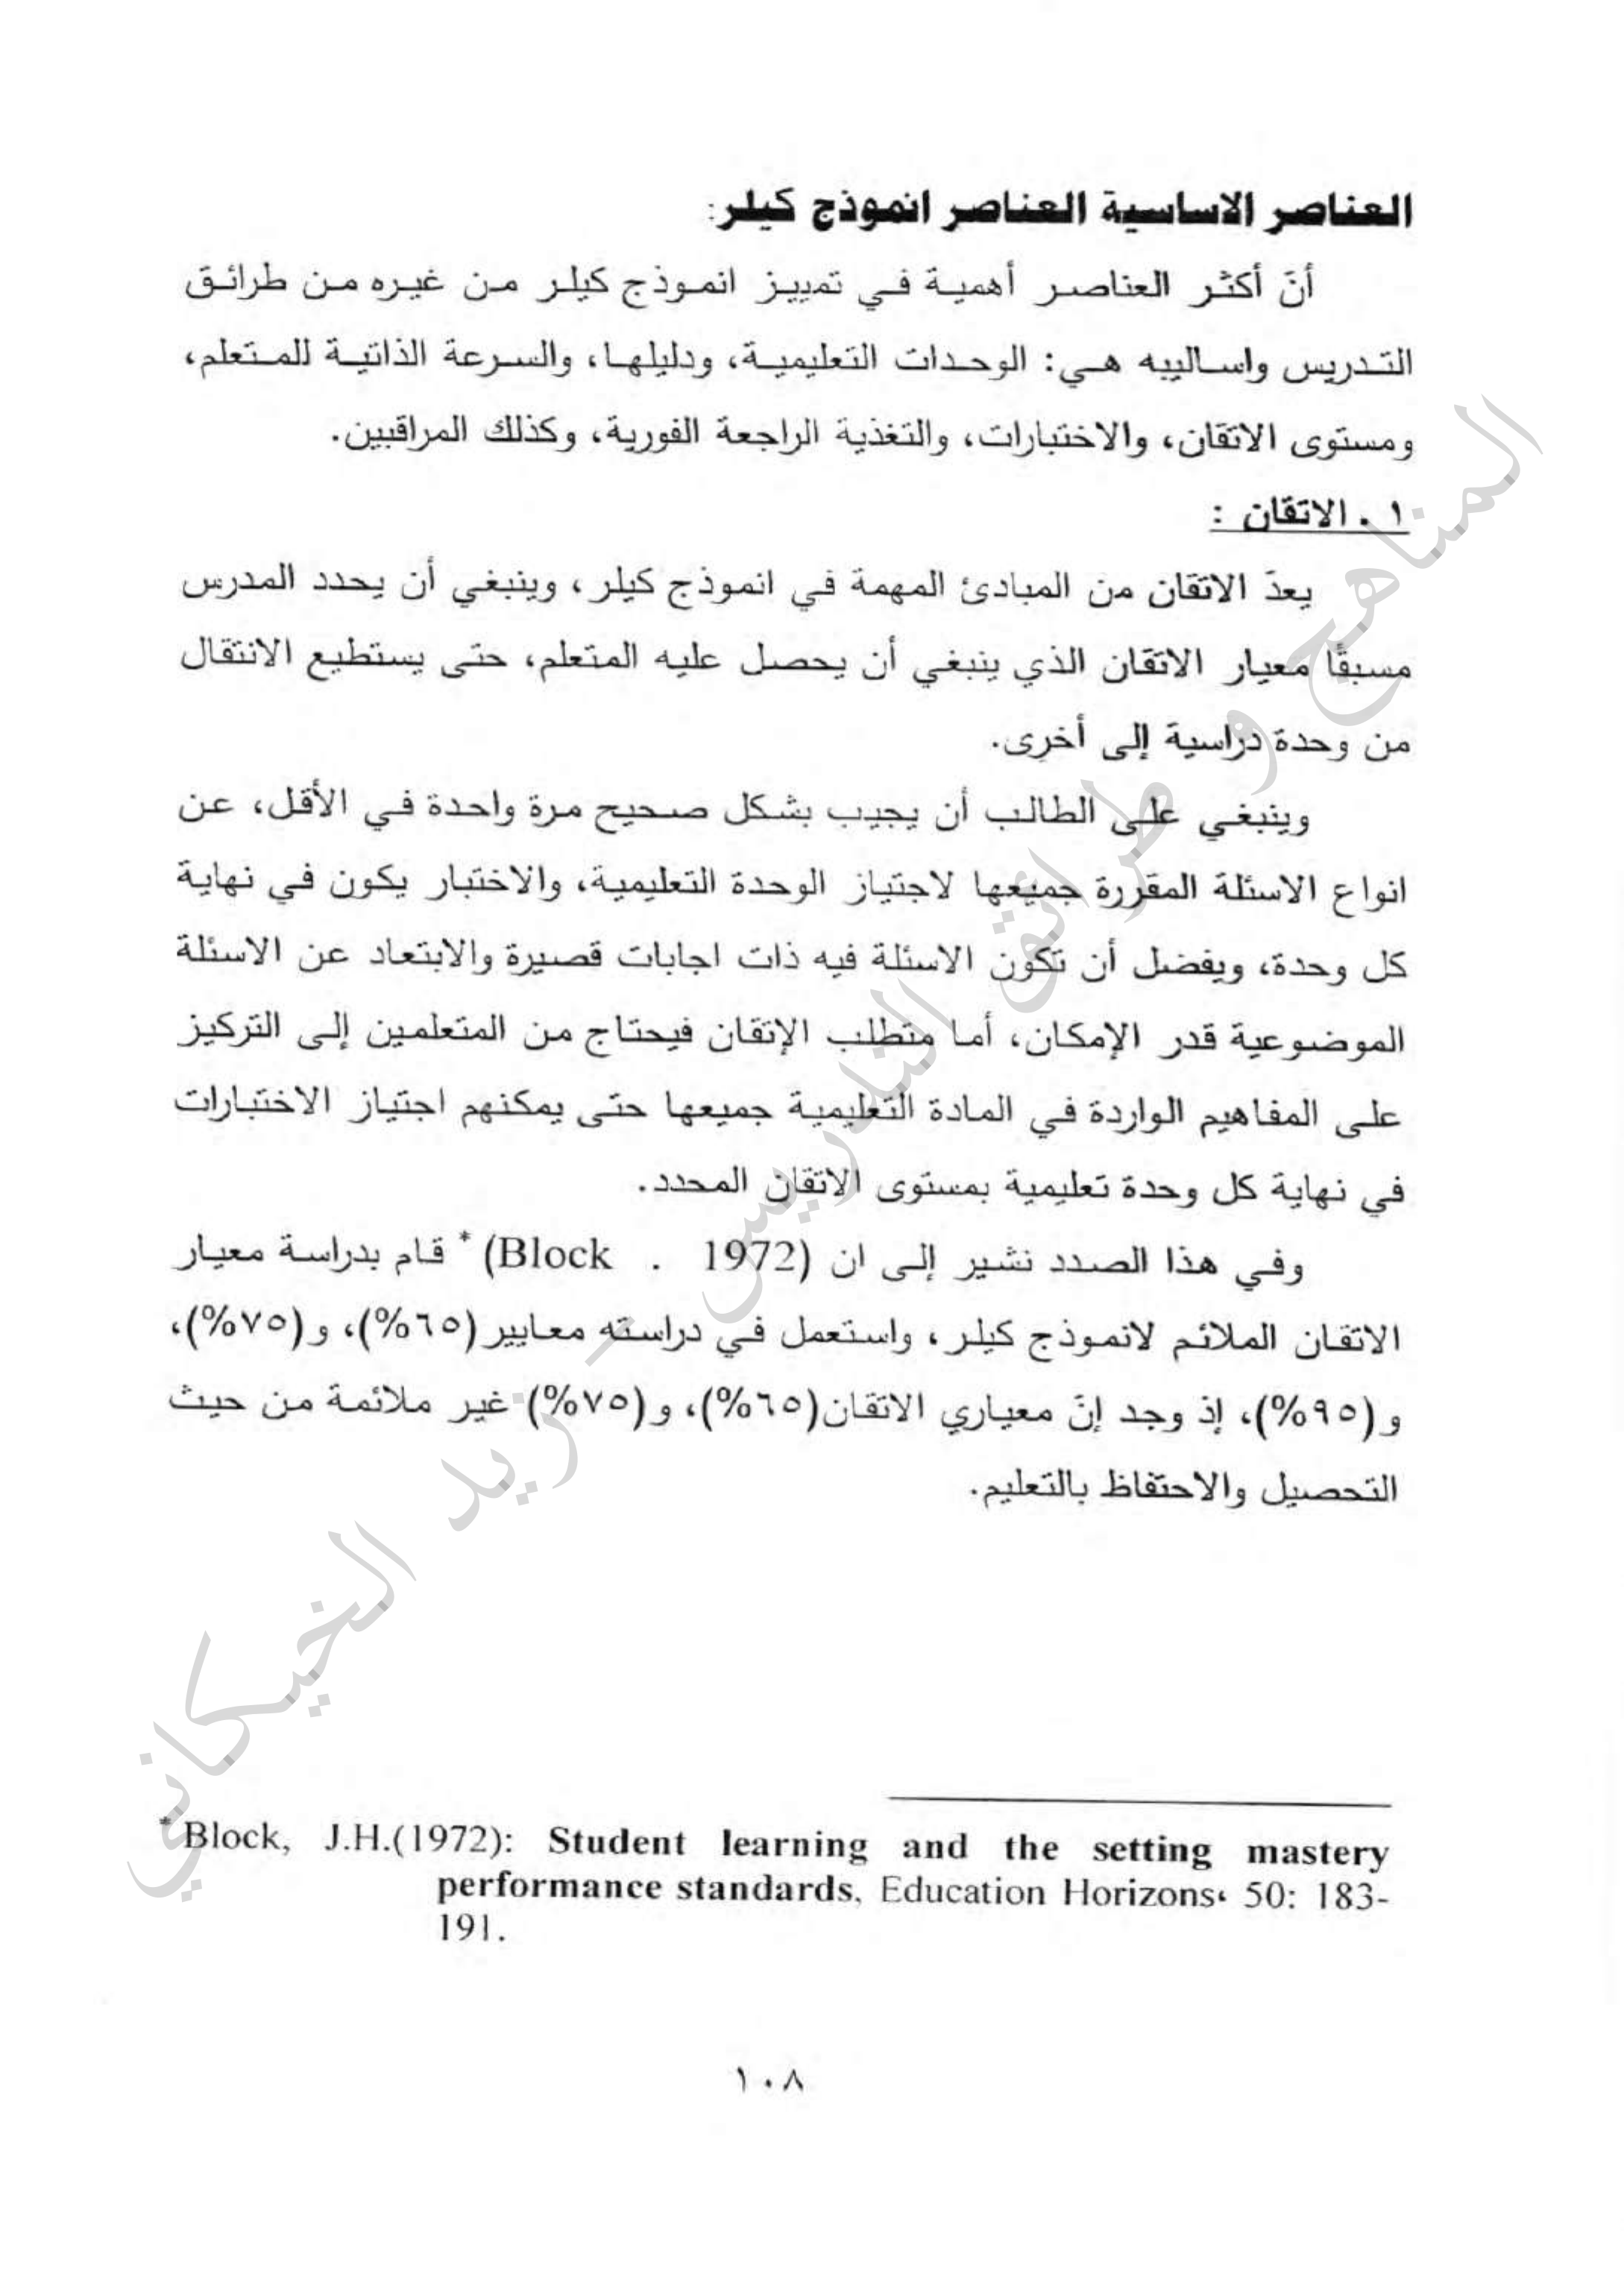 العناصر الاساسية العناصر انموذج كيلر:
أنّ أكثر العناصر أهمية في تمييز انموذج كيلر من غيره من طرائق
التدريس واساليبه هي: الوحدات التعليمية، ودليلها، والسرعة الذاتية للمتعلم،
ومستوى الاتقان، والاختبارات، والتغذية الراجعة الفورية، وكذلك المراقبين.
١ . الاتقان :
يعدّ الاتقان من المبادئ المهمة في انموذج كيلر، وينبغي أن يحدد المدرس
مسبقًا معيار الاتقان الذي ينبغي أن يحصل عليه المتعلم، حتى يستطيع الانتقال
من وحدة دراسية إلى أخرى.
وينبغي على الطالب أن يجيب بشكل صحيح مرة واحدة في الأقل، عن
انواع الاسئلة المقررة جميعها لاجتياز الوحدة التعليمية، والاختبار يكون في نهاية
كل وحدة، ويفضل أن تكون الاسئلة فيه ذات اجابات قصيرة والابتعاد عن الاسئلة
الموضوعية قدر الإمكان، أما متطلب الإتقان فيحتاج من المتعلمين إلى التركيز
على المفاهيم الواردة في المادة التعليمية جميعها حتى يمكنهم اجتياز الاختبارات
في نهاية كل وحدة تعليمية بمستوى الاتقان المحدد.
وفي هذا الصدد نشير إلى ان (Block . 1972) * قام بدراسة معيار
الاتقان الملائم لانموذج كيلر، واستعمل في دراسته معايير (٦٥%)، و(٧٥%)،
و(٩٥%)، إذ وجد إنّ معياري الاتقان(٦٥%)، و(٧٥%) غير ملائمة من حيث
التحصيل والاحتفاظ بالتعليم.
* Block, J.H.(1972): Student learning and the setting mastery
performance standards, Education Horizons، 50: 183-
191.
١٠٨
المناهج و طرائق التدريس - زيد الخيكاني